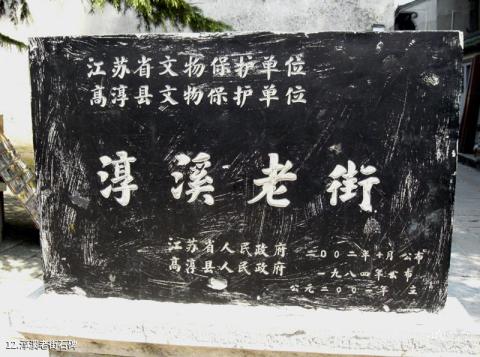 江苏省文物保护单位
高淳县文物保护单位
淳溪老街
江苏省人民政府 二〇〇二年十月公布
高淳县人民政府 一九八四年公布
公元二〇〇二年 立
12.淳溪老街石碑